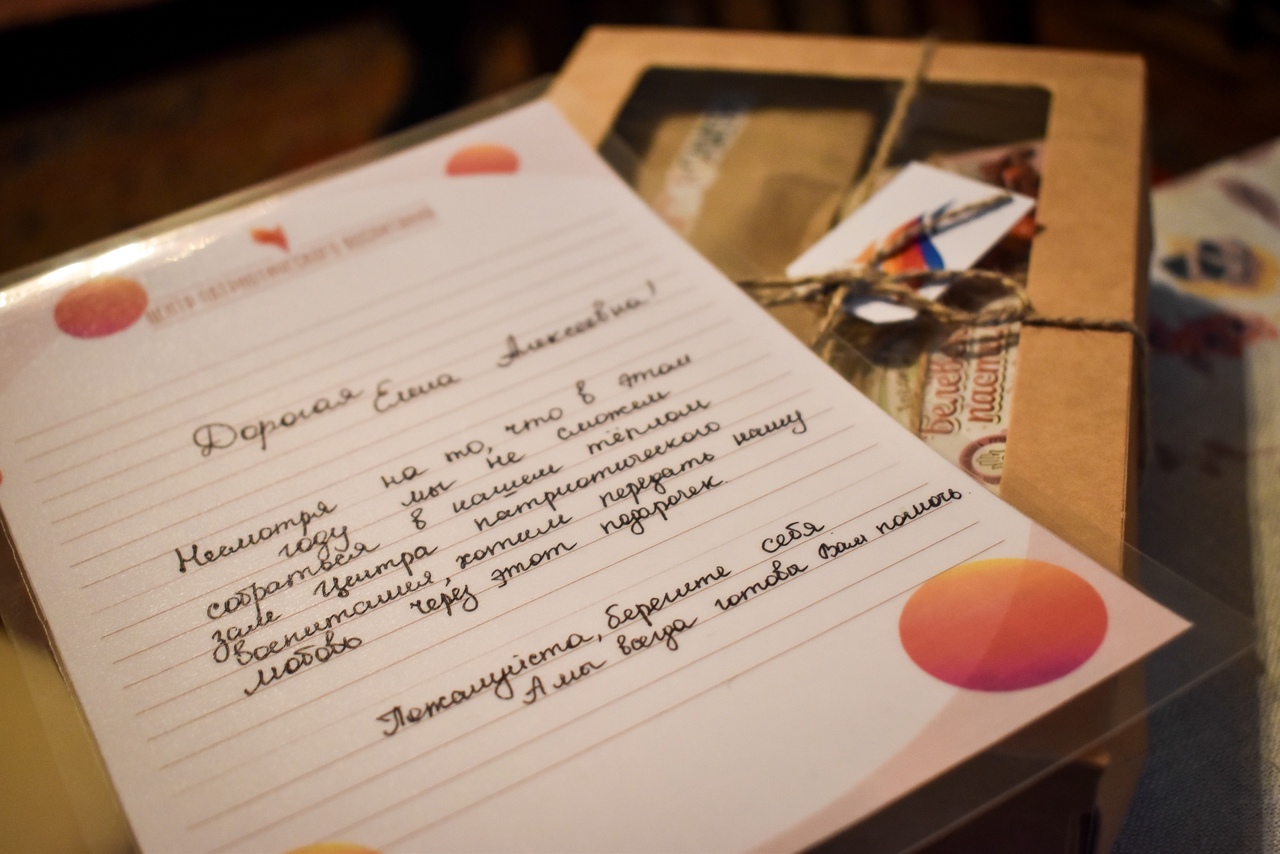 ЦЕНТР ПАТРИОТИЧЕСКОГО ВОСПИТАНИЯ
Дорогая Елена Алексеевна!
Несмотря на то, что в этом
году мы не сможем
собраться в нашем тёплом
зале Центра патриотического
воспитания, хотим передать нашу
любовь через этот подарочек.
Пожалуйста, берегите себя
А мы всегда готовы Вам помочь.
Белев
пасти